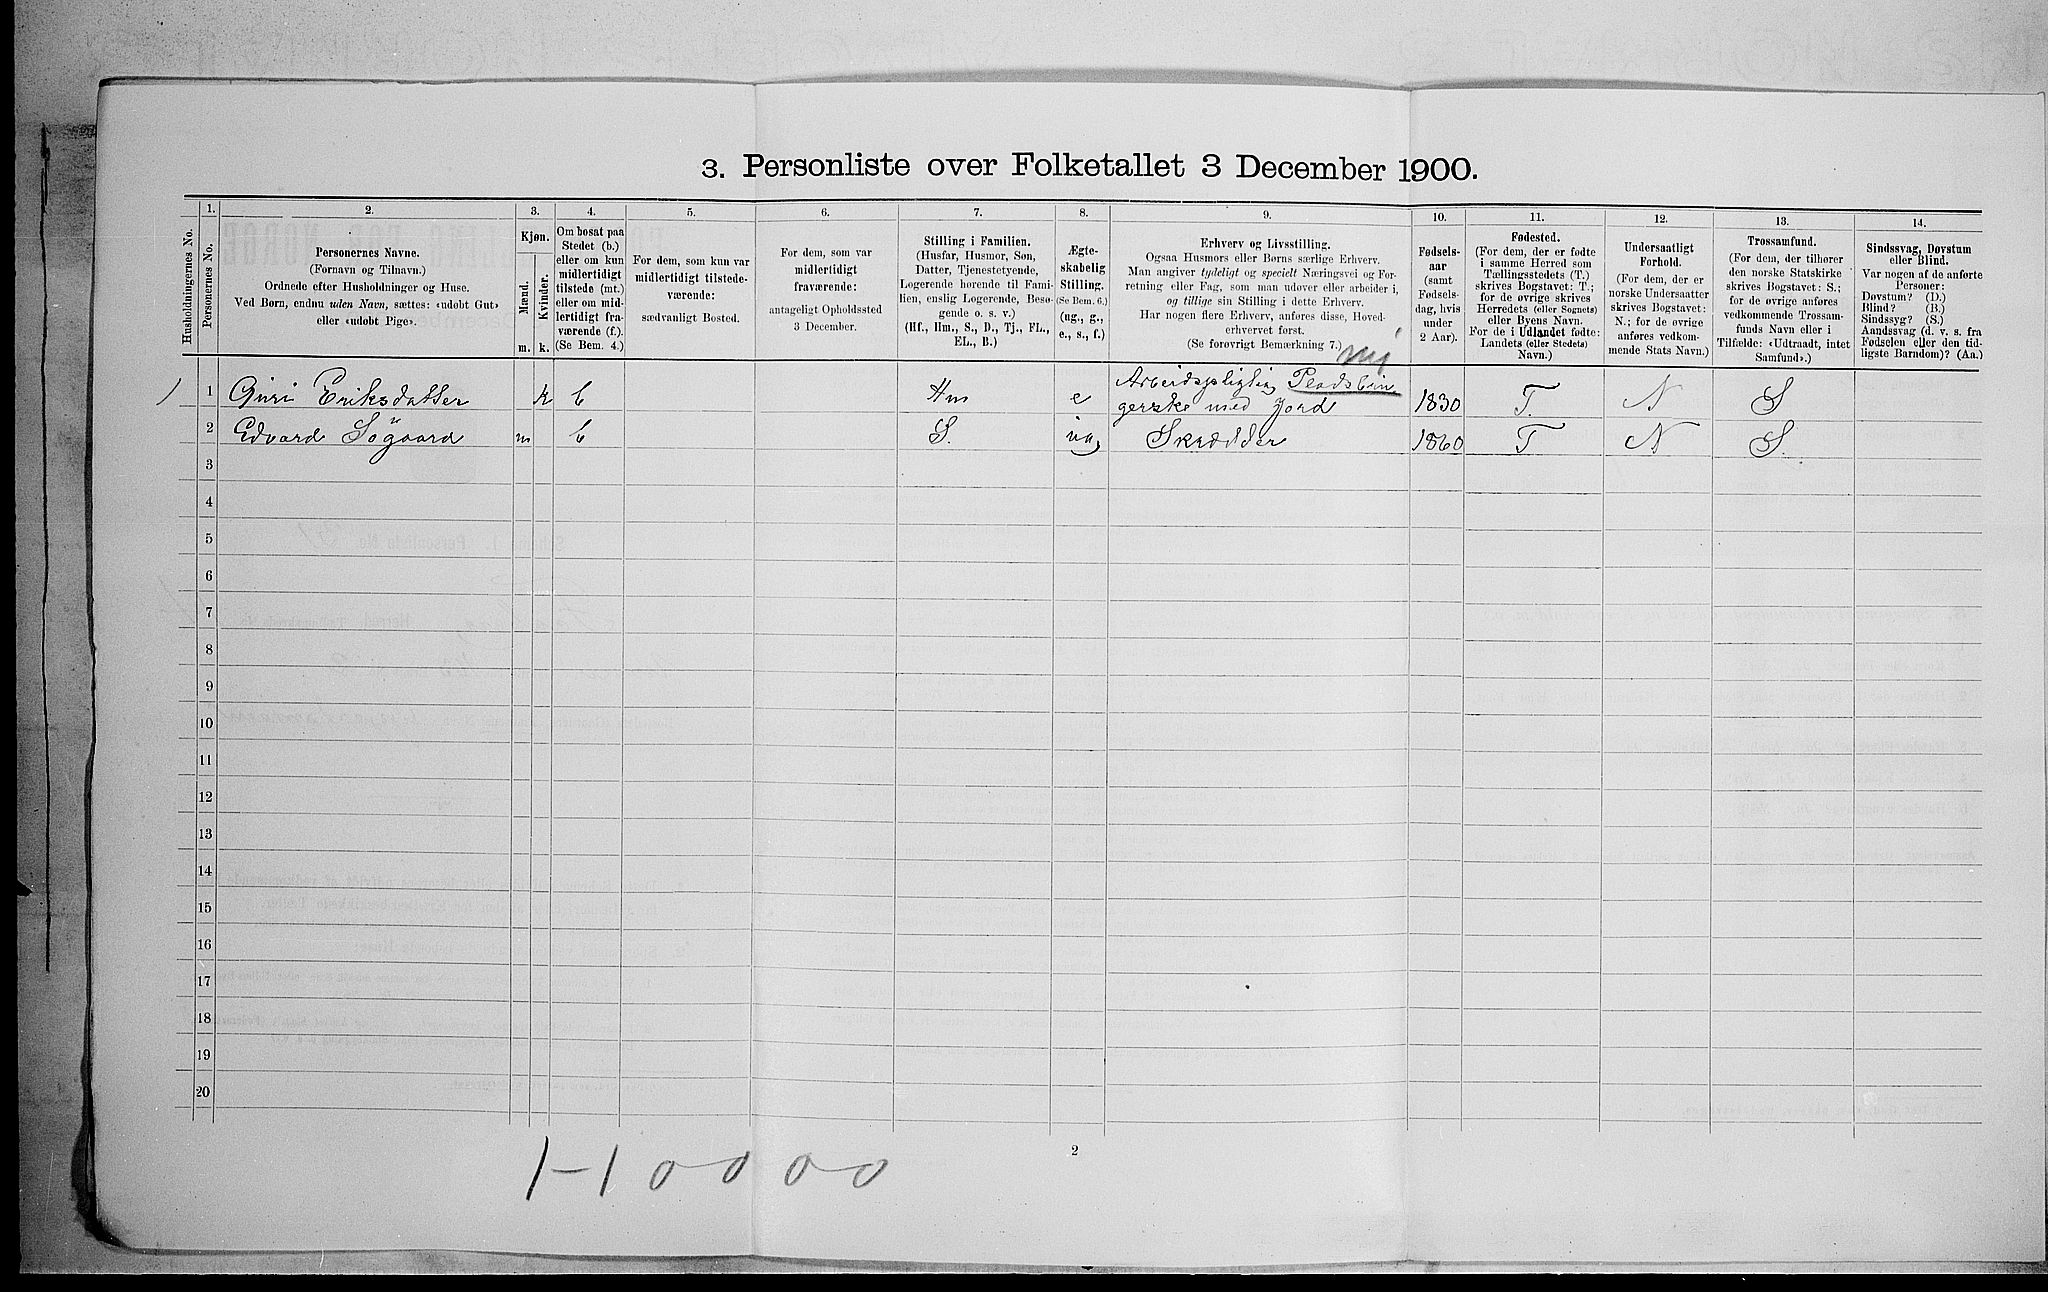 3. Personliste over Folketallet 3 December 1900.
1. 2. 3. 4. 5. 6. 7. 8. 9. 10. 11. 12. 13. 14.
Husholdningernes No.
Personernes No.
Personernes Navne.
(Fornavn og Tilnavn.)
Ordnede efter Husholdninger og Huse.
Ved Børn, endnu uden Navn, sættes: «udøbt Gut»
eller «udøbt Pige».
Kjøn.
Mænd.
Kvinder.
m. k.
Om bosat paa
Stedet (b.)
eller om kun
midlertidigt
tilstede (mt.)
eller om mid-
lertidigt fra-
værende (f.).
(Se Bem. 4.)
For dem, som kun var
midlertidigt tilstede-
værende:
sædvanligt Bosted.
For dem, som var
midlertidigt
fraværende:
antageligt Opholdssted
3 December.
Stilling i Familien.
(Husfar, Husmor, Søn,
Datter, Tjenestetyende,
Logerende hørende til Fami-
lien, enslig Logerende, Besø-
gende o. s. v.)
(Hf., Hm., S., D., Tj., FL.,
EL., B.)
Ægte-
skabelig
Stilling.
(Se Bem. 6.)
(ug., g.,
e., s., f.)
Erhverv og Livsstilling.
Ogsaa Husmors eller Børns særlige Erhverv.
Man angiver tydeligt og specielt Næringsvei og For-
retning eller Fag, som man udøver eller arbeider i,
og tillige sin Stilling i dette Erhverv.
Har nogen flere Erhverv, anføres disse, Hoved-
erhvervet først.
(Se forøvrigt Bemærkning 7.)
Fødsels-
aar
(samt
Fødsels-
dag, hvis
under
2 Aar).
Fødested.
(For dem, der er fødte
i samme Herred som
Tællingsstedets (T.)
skrives Bogstavet: T.;
for de øvrige skrives
Herredets (eller Sognets)
eller Byens Navn.
For de i Udlandet fødte:
Landets (eller Stedets)
Navn.)
Undersaatligt
Forhold.
(For dem, der er
norske Undersaatter
skrives Bogstavet:
N.; for de øvrige
anføres vedkom-
mende Stats Navn.)
Trossamfund.
(For dem, der tilhører
den norske Statskirke
skrives Bogstavet: S.;
for de øvrige anføres
vedkommende Trossam-
funds Navn eller i
Tilfælde: «Udtraadt, intet
Samfund».)
Sindssvag, Døvstum
eller Blind.
Var nogen af de anførte
Personer:
Døvstum? (D.)
Blind? (B.)
Sindssyg? (S.)
Aandssvag (d. v. s. fra
Fødselen eller den tid-
ligste Barndom)? (Aa.)
1 1 Guri Eriksdatter k b Hm e Arbeidsygtig Pladsbru
gerske med Jord 1830 T. N S
2 Edvard Søgaard m b S. ug Skrædder 1860 T N S.
3
4
5
6
7
8
9
10
11
12
13
14
15
16
17
18
19
20
2
1-1 0 0 0 0